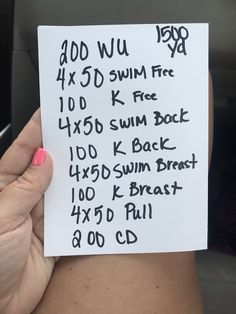 1500
yd
200 WU
4x50 SWIM Free
100 K Free
4x50 SWIM Back
100 K Back
4x50 SWIM Breast
100 K Breast
4x50 Pull
200 CD